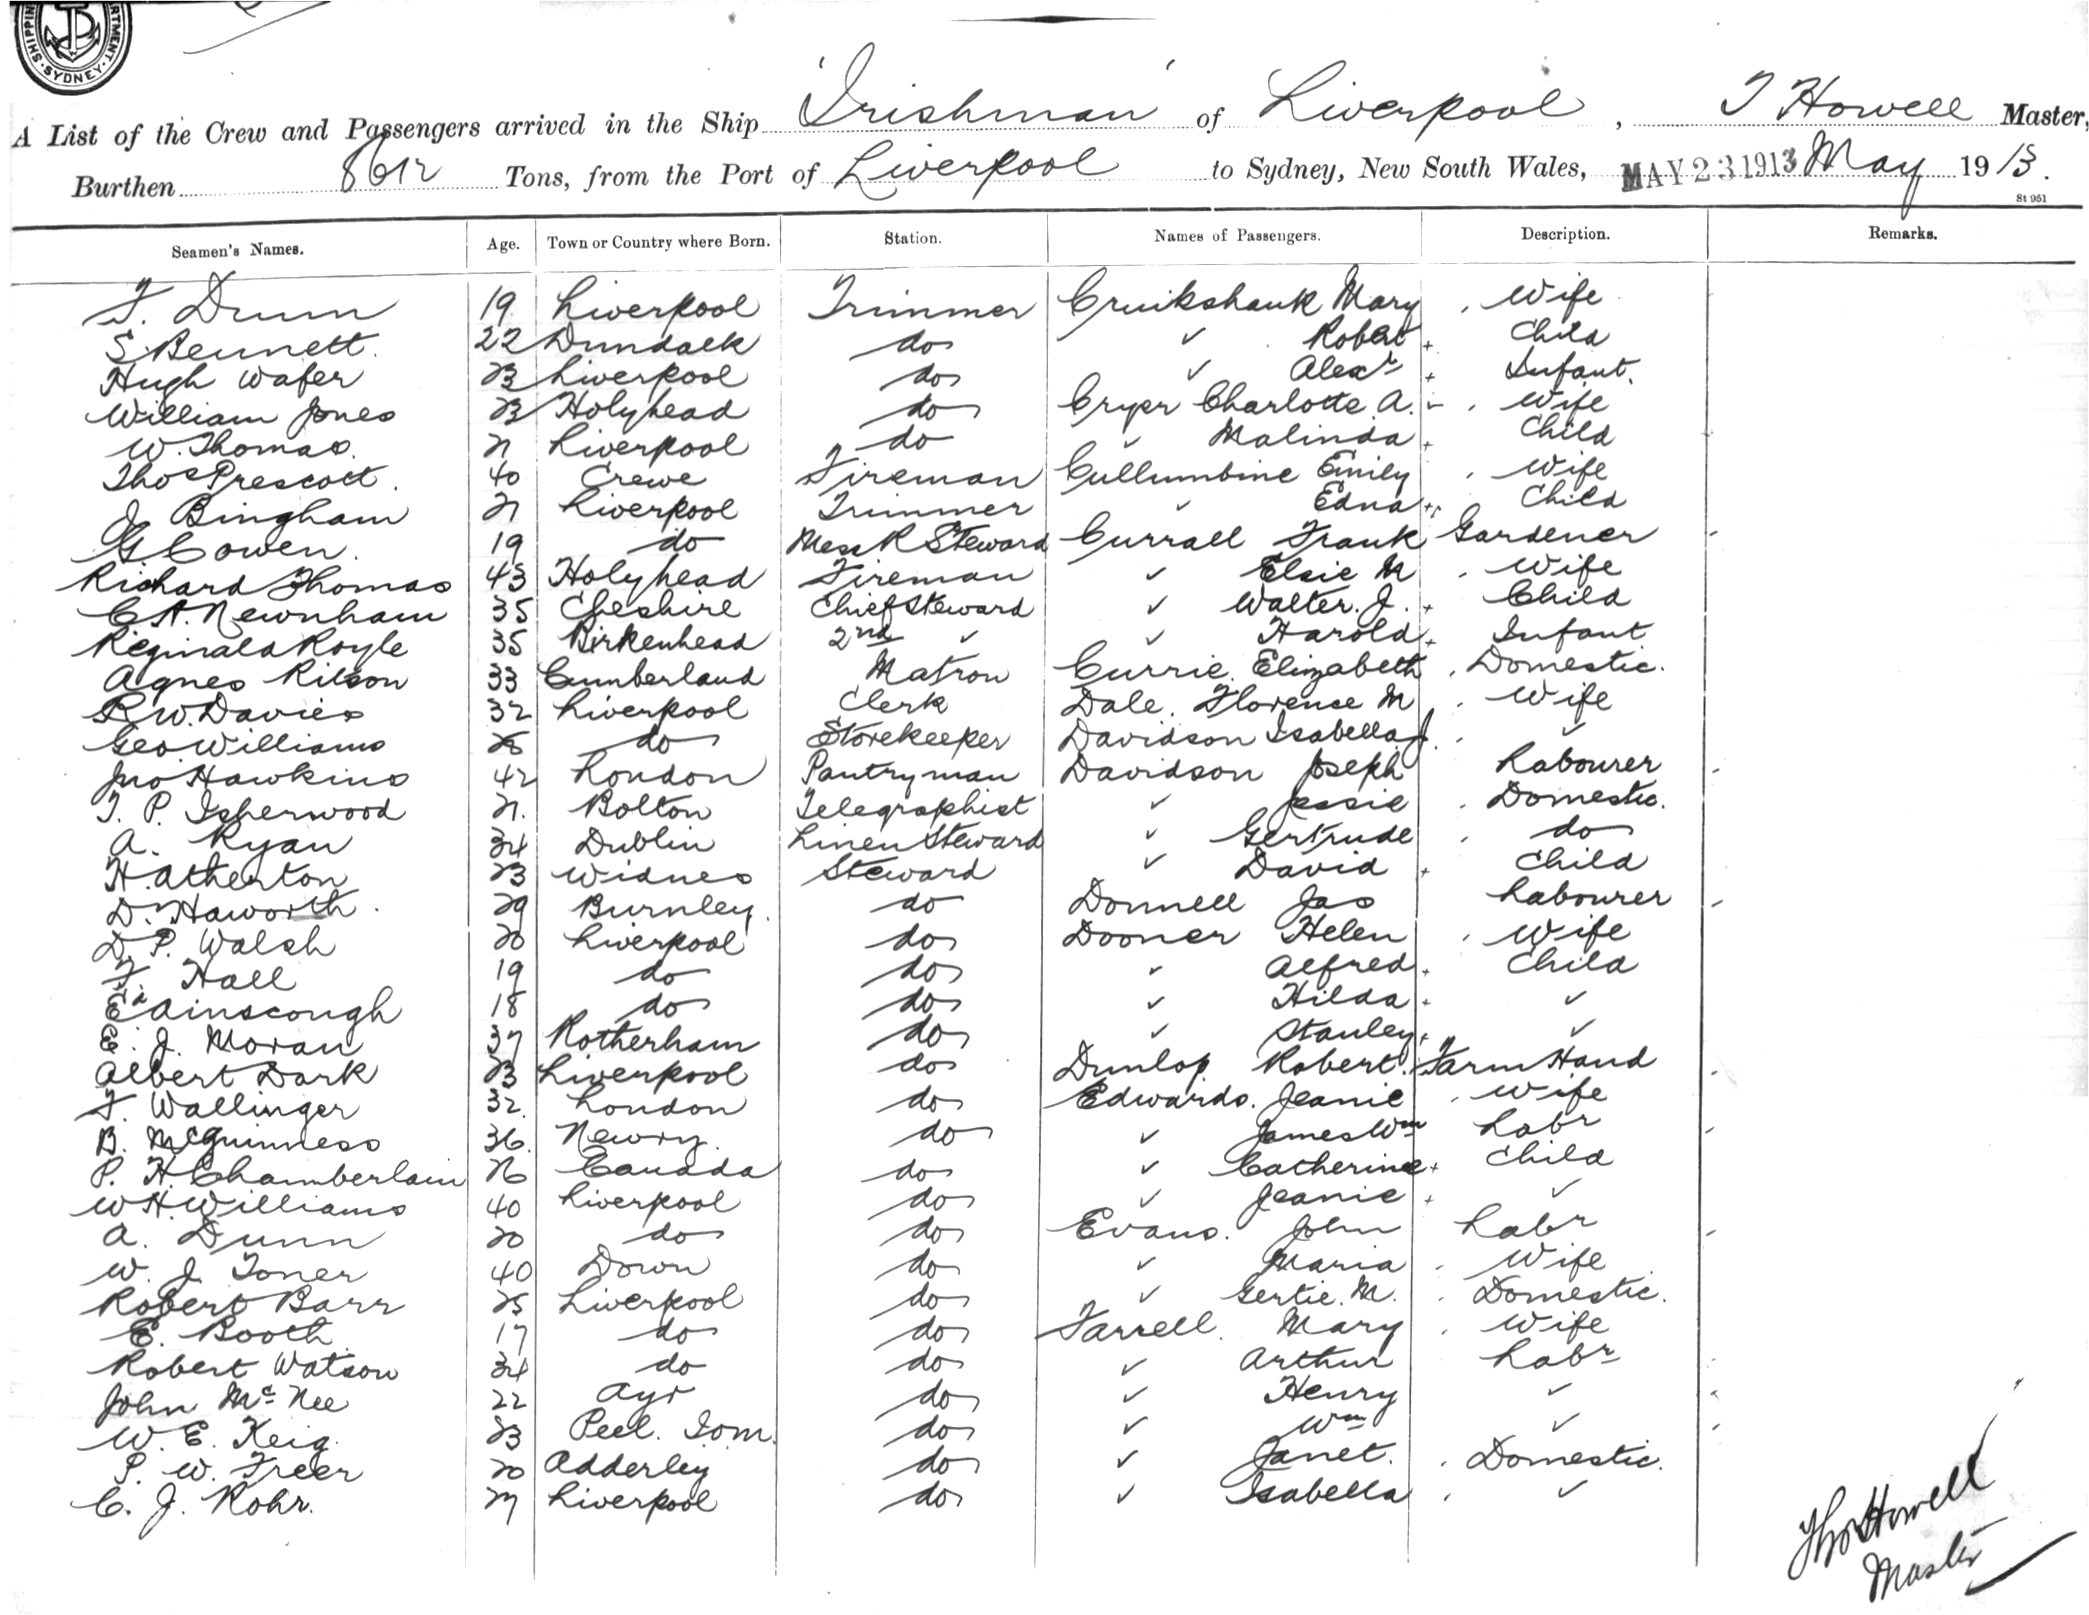 SHIPPING DEPARTMENT. SYDNEY.
A List of the Crew and Passengers arrived in the Ship 'Irishman' of Liverpool, T Howell Master,
Burthen 8612 Tons, from the Port of Liverpool to Sydney, New South Wales, MAY 23 1913 May 1913.
St 951
Seamen's Names. Age. Town or Country where Born. Station. Names of Passengers. Description. Remarks.
F. Dunn 19 Liverpool Trimmer Cruikshank Mary Wife
S Bennett. 22 Dundalk do ✓ Robert + Child
Hugh Wafer 23 Liverpool do ✓ Alexr + Infant.
William Jones 23 Holyhead do Cryer Charlotte A. Wife
W. Thomas. 21 Liverpool do ✓ Malinda + Child
Thos Prescott. 40 Crewe Fireman Cullumbine Emily Wife
J Bingham 21 Liverpool Trimmer ✓ Edna + Child
G Cowen. 19 do Mess R Steward Currall Frank Gardener
Richard Thomas 43 Holyhead Fireman ✓ Elsie M Wife
C A. Newnham 35 Cheshire Chief Steward ✓ Walter. J. + Child
Reginald Royle 35 Birkenhead 2nd ✓ ✓ Harold + Infant
Agnes Ritson 33 Cumberland Matron Currie Elizabeth Domestic.
R W. Davies 32 Liverpool Clerk Dale. Florence M Wife
Geo Williams do Storekeeper Davidson Isabella J. ✓
Jno Hawkins 42 London Pantryman Davidson Joseph Labourer
T. P. Isherwood 21. Bolton Telegraphist ✓ Jessie Domestic.
A. Ryan 34 Dublin Linen Steward ✓ Gertrude do
H. Atherton 23 Widnes Steward ✓ David + Child
D. Haworth. 29 Burnley. do Donnell Jas Labourer
D. P. Walsh 20 Liverpool do Dooner Helen Wife
F. Hall 19 do do ✓ Alfred + Child
Ed Ainscough 18 do do ✓ Hilda + ✓
E. J. Moran 37 Rotherham do ✓ Stanley + ✓
Albert Dark 23 Liverpool do Dunlop Robert. Farm Hand
F. Wallinger 32. London do Edwards. Jeanie Wife
B. McGuinness 36. Newry. do ✓ James Wm Labr
P. H. Chamberlain 26 Canada do ✓ Catherine + Child
W H. Williams 40 Liverpool do ✓ Jeanie + ✓
A. Dunn 20 do do Evans. John Labr
W. J. Toner 40 Down do ✓ Maria Wife
Robert Barr 25 Liverpool do ✓ Gertie. M. Domestic.
E. Booth 17 do do Farrell. Mary Wife
Robert Watson 34 do do ✓ Arthur Labr
John Mc Nee 22 Ayr do ✓ Henry ✓
W. E. Keig. 23 Peel. Iom. do ✓ Wm ✓
P. W. Freer 20 Adderley do ✓ Janet. Domestic.
C. J. Rohr. 27 Liverpool do ✓ Isabella ✓
Thos Howell
Master